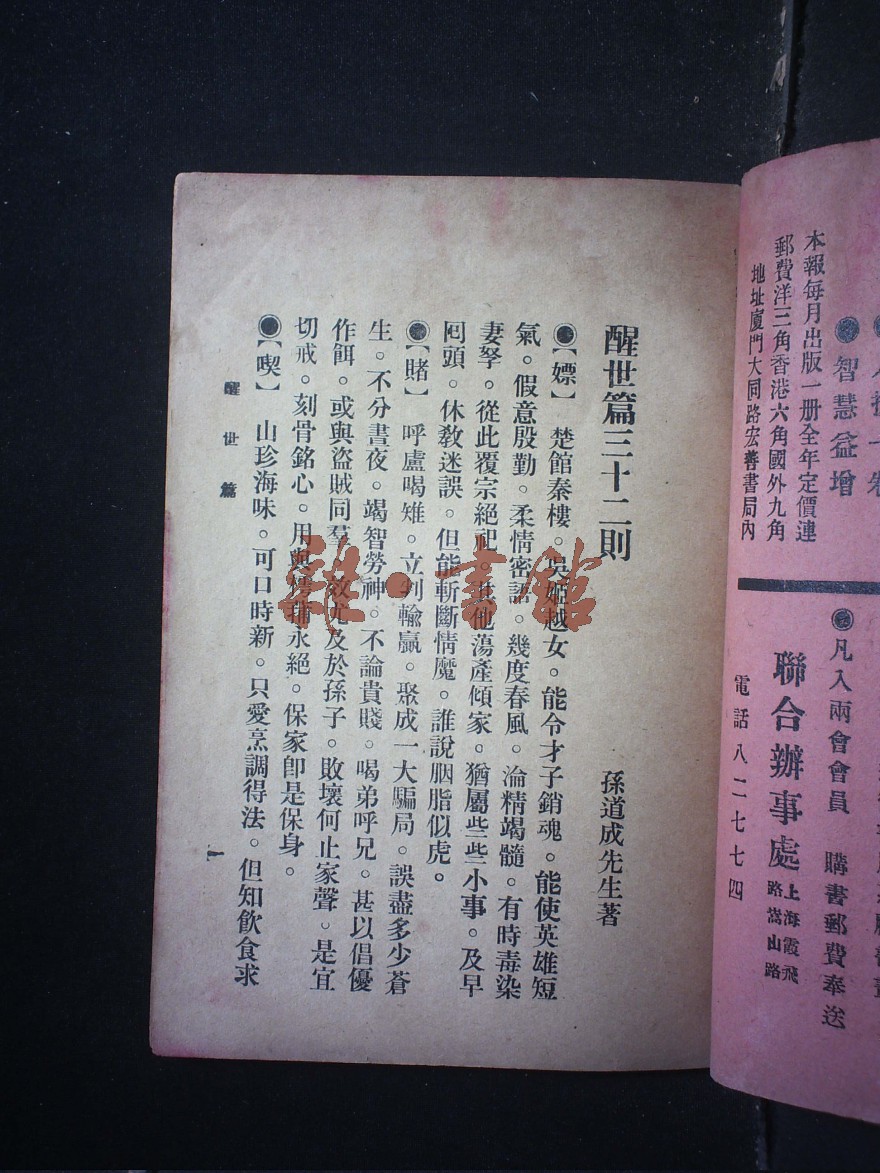 本報每月出版一册全年定價連
郵費洋三角香港六角國外九角
地址廈門大同路宏善書局內
智慧益增
凡入兩會會員 購書郵費奉送
聯合辦事處 上海霞飛
路嵩山路
電話八二七七四
醒世篇三十二則
孫道成先生著
●【嫖】 楚館秦樓。吳姬越女。能令才子銷魂。能使英雄短
氣。假意殷勤。柔情密語。幾度春風。淪精竭髓。有時毒染
妻孥。從此覆宗絕祀。其他蕩產傾家。猶屬些些小事。及早
囘頭。休教迷誤。但能斬斷情魔。誰說胭脂似虎。
●【賭】 呼盧喝雉。立判輸贏。聚成一大騙局。誤盡多少蒼
生。不分晝夜。竭智勞神。不論貴賤。喝弟呼兄。甚以倡優
作餌。或與盜賊同羣。效尤及於孫子。敗壞何止家聲。是宜
切戒。刻骨銘心。用與樗蒲永絕。保家卽是保身。
●【喫】 山珍海味。可口時新。只愛烹調得法。但知飲食求
醒世篇
一
雜·書館